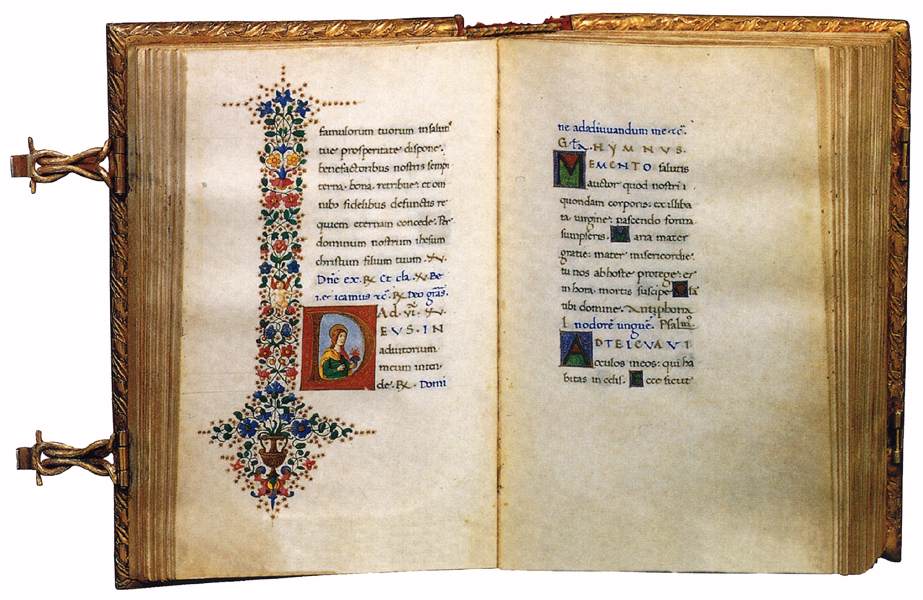 famulorum tuorum in salutis
tue prosperitate dispone.
benefactoribus nostris sempi
terna bona retribue: et om
nibus fidelibus defunctis re
quiem eternam concede. Per
dominum nostrum ihesum
christum filium tuum.
Dñe ex. ℞ Et cla. Be
icamus ℞ Deo grãs.
Ad
DEUS IN
adiutorium
meum inten
de. ℞. Domi
ne ad adiuvandum me
HYMNUS.
MEMENTO salutis
auctor quod nostri
quondam corporis. ex illiba
ta virgine: nascendo forma
sumpseris. Maria mater
gratie: mater misericordie.
tu nos ab hoste protege: et
in hora mortis suscipe.
tibi domine. Antiphona
In odorẽ unguẽ.
AD TE LEVAVI
oculos meos: qui ha
bitas in celis. Ecce sicut